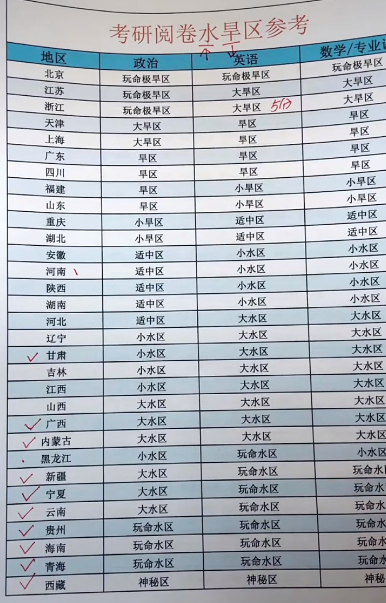 考研阅卷水旱区参考
地区 政治 英语 数学/专业
北京 玩命极旱区 玩命极旱区 玩命极旱区
江苏 玩命极旱区 大旱区 大旱区
浙江 玩命极旱区 大旱区 5分 大旱区
天津 大旱区 旱区 旱区
上海 大旱区 旱区 旱区
广东 旱区 旱区 旱区
四川 旱区 旱区 旱区
福建 旱区 小旱区 小旱区
山东 旱区 小旱区 小旱区
重庆 小旱区 适中区 适中区
湖北 小旱区 适中区 适中区
安徽 适中区 小水区 小水区
河南 适中区 小水区 小水区
陕西 适中区 小水区 小水区
湖南 适中区 小水区 小水区
河北 适中区 大水区 大水区
辽宁 小水区 大水区 大水区
甘肃 小水区 大水区 大水区
吉林 小水区 大水区 大水区
江西 小水区 大水区 大水区
山西 大水区 大水区 大水区
广西 大水区 大水区 大水区
内蒙古 大水区 大水区 大水区
黑龙江 小水区 玩命水区 小水区
新疆 大水区 玩命水区 玩命水
宁夏 大水区 玩命水区 玩命水
云南 大水区 玩命水区 玩命水
贵州 玩命水区 玩命水区 玩命水
海南 玩命水区 玩命水区 玩命水
青海 玩命水区 玩命水区 玩命水
西藏 神秘区 神秘区 神秘